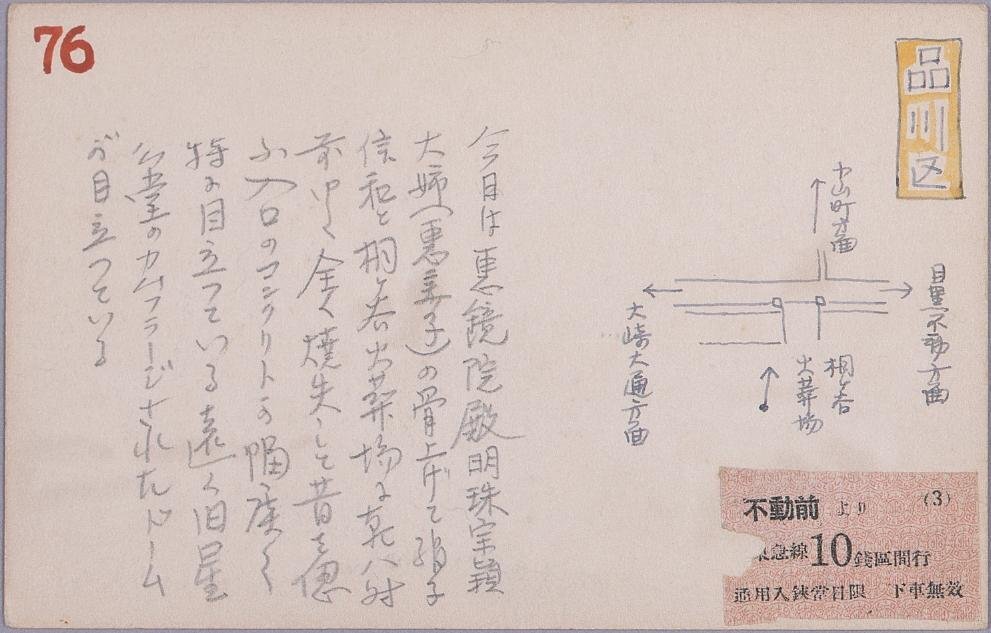 76
品川区
小山町方面
目黒不動方面
大崎大通方面
桐ヶ谷
火葬場
不動前 より (3)
急線10錢區間行
通用入鋏當日限 下車無效
今日は恵鏡院殿明珠宗頴
大姉(恵美子)の骨上げで
信和と桐ヶ谷火葬場に
全く焼失して昔を偲
ぶ入口のコンクリートの幅広く
特に目立っている遠く旧星
公堂のカムフラージされたドーム
が目立っている